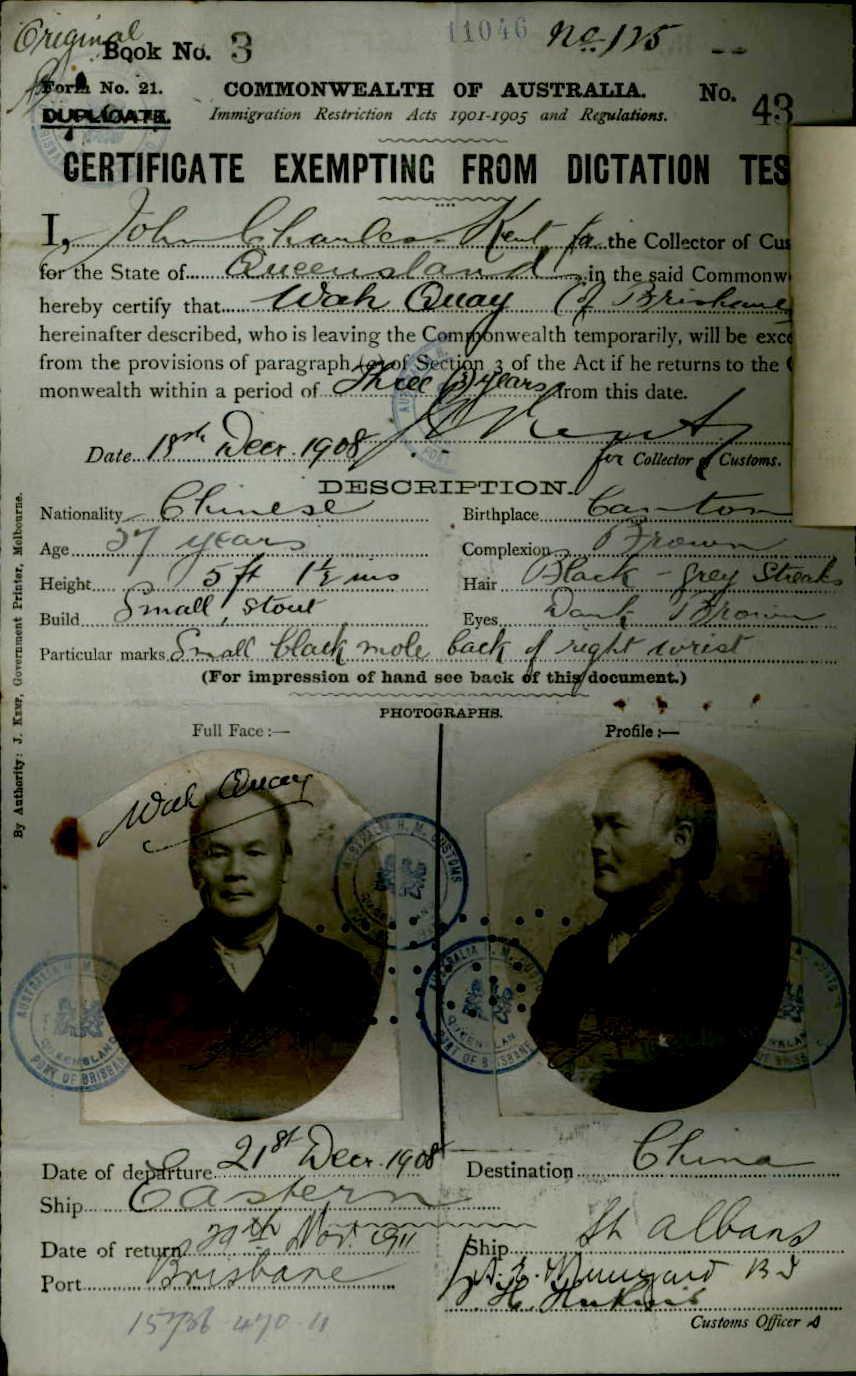 Original
Book No. 3
11046 No. 125
Form No. 21.
DUPLICATE.
COMMONWEALTH OF AUSTRALIA.
No. 43
Immigration Restriction Acts 1901-1905 and Regulations.
CERTIFICATE EXEMPTING FROM DICTATION TES
I, John Charles Kent, for the Collector of Cus
for the State of Queensland in the said Commonw
hereby certify that Wah Quay (of Brisbane)
hereinafter described, who is leaving the Commonwealth temporarily, will be exce
from the provisions of paragraph (a) of Section 3 of the Act if he returns to the C
monwealth within a period of Three (3) years from this date.
Date 18th Decr. 1908
for Collector of Customs.
DESCRIPTION.
Nationality Chinese Birthplace Canton
Age 57 years Complexion Brown
Height 5 ft 1½ ins Hair Black - grey Streaks
Build Small, stout Eyes Dark Brown
Particular marks Small black mole back of right wrist
(For impression of hand see back of this document.)
PHOTOGRAPHS.
Full Face :— Profile :—
Wah Quay
AUSTRALIA H. M. CUSTOMS
QUEENSLAND
PORT OF BRISBANE
Date of departure 21st Decr. 1908 Destination China
Ship Eastern
Date of return 29th Nov 1911 Ship St Albans
Port Brisbane
Customs Officer
By Authority: J. Kemp, Government Printer, Melbourne.